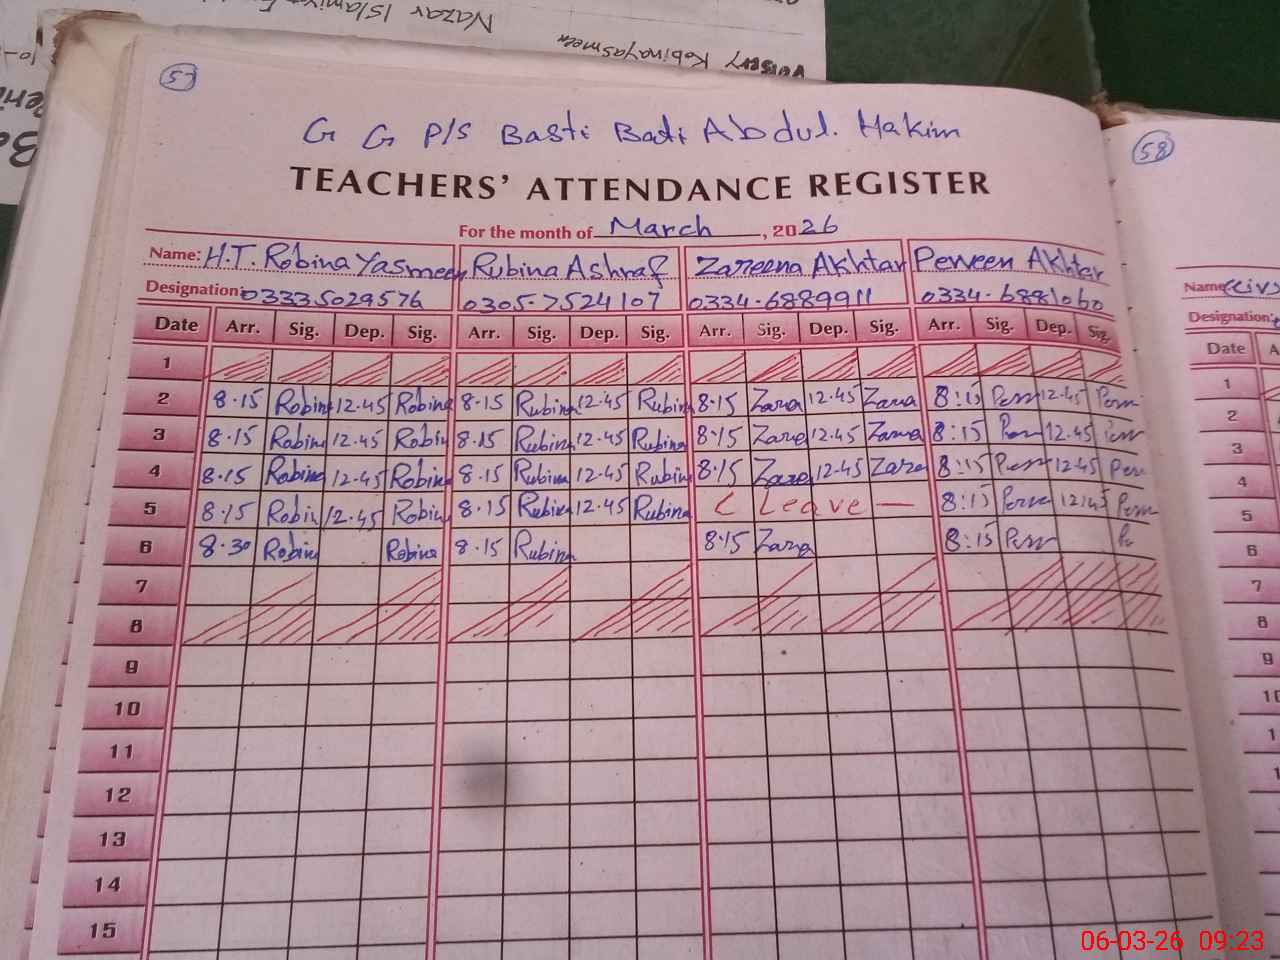 Nazar Islamiyat
Robinayasmeen
57
G G P/S Basti Badi Abdul. Hakim
TEACHERS' ATTENDANCE REGISTER
For the month of March, 2026
Name: H.T. Robina Yasmeen Rubina Ashraf Zareena Akhtar Perveen Akhtar
Designation: 03335029576 0305-7524107 0334-6889911 0334-6881060
Date Arr. Sig. Dep. Sig. Arr. Sig. Dep. Sig. Arr. Sig. Dep. Sig. Arr. Sig. Dep. Sig.
1
2 8.15 Robina 12.45 Robina 8.15 Rubina 12.45 Rubina 8.15 Zara 12.45 Zara 8:15 12.45
3 8.15 Robina 12.45 Robina 8.15 Rubina 12.45 Rubina 8.15 Zara 12.45 Zara 8:15 12.45
4 8.15 Robina 12.45 Robina 8.15 Rubina 12.45 Rubina 8.15 Zara 12.45 Zara 8:15 12.45
5 8.15 Robina 12.45 Robina 8.15 Rubina 12.45 Rubina Leave 8:15 12:45
6 8.30 Robina Robina 8.15 Rubina 8.15 Zara 8:15
7
8
9
10
11
12
13
14
15
58
Name
Designation:
Date
1
2
3
4
5
6
7
8
9
06-03-26 09:23